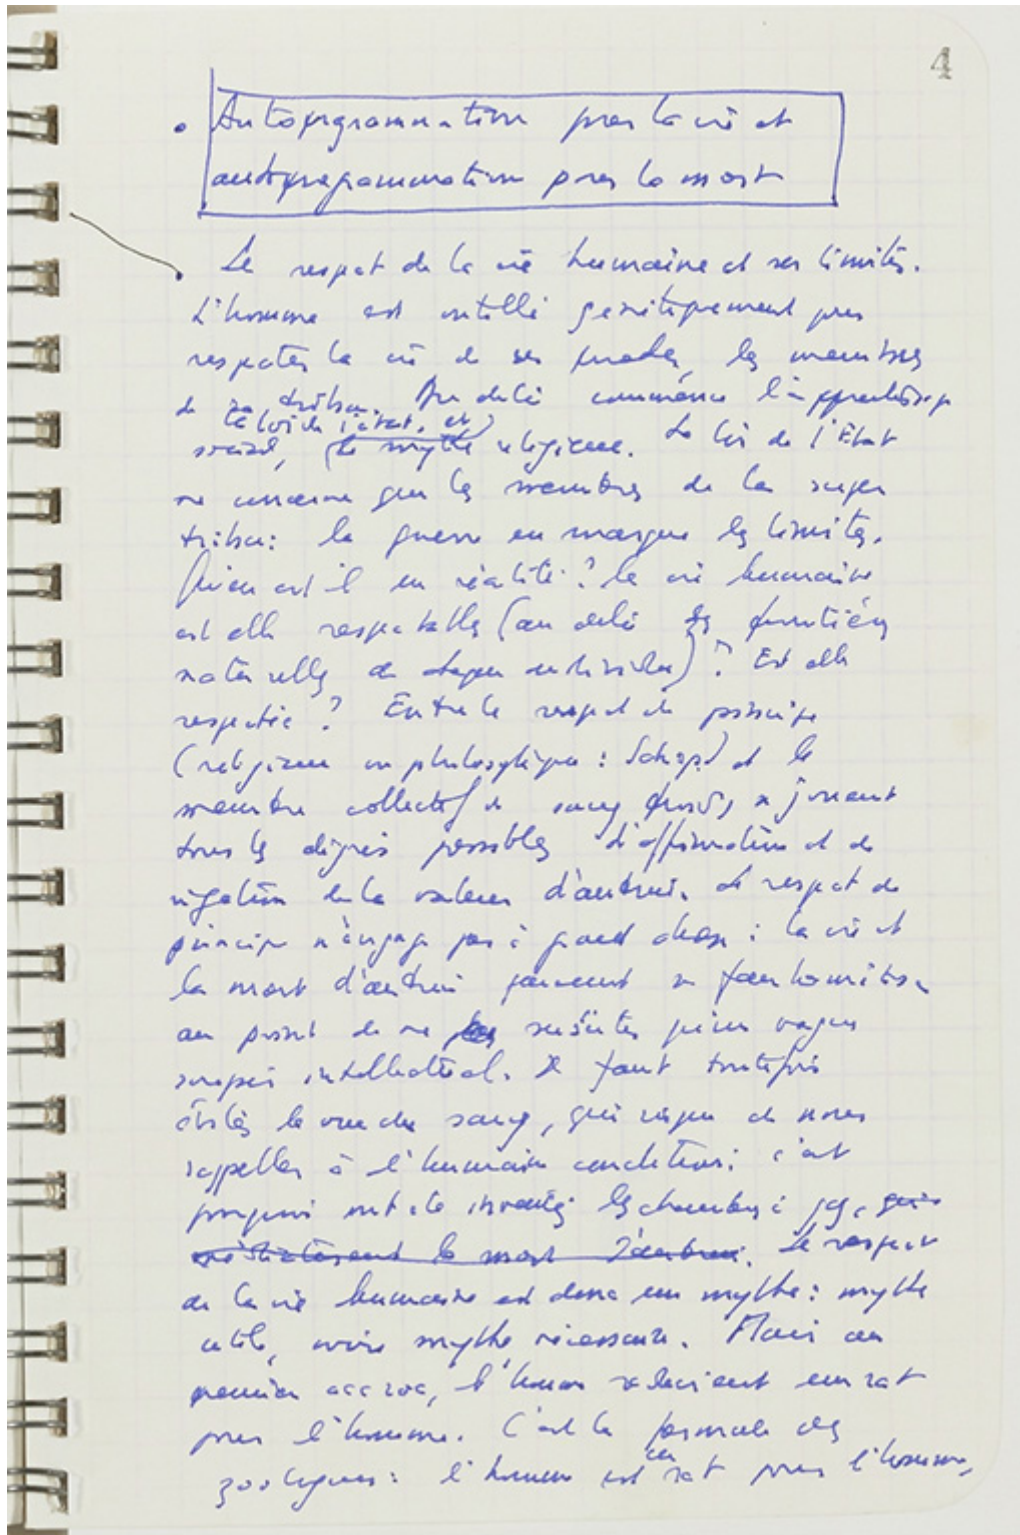 4
Autoprogrammation pour la vie et
autoprogrammation pour la mort
Le respect de la vie humaine et ses limites.
L'homme est outillé génétiquement pour
respecter la vie de ses proches, les membres
de sa tribu. Au delà commence l'apprentissage
la loi de l'état, et
social, (le mythe religieux. La loi de l'Etat
ne concerne que les membres de la super
tribu: la guerre en marque les limites.
Qu'en est il en réalité? la vie humaine
est elle respectable (au delà des
naturelles de chaque individu)? Est elle
respectée? Entre le respect de principe
(religieux ou philosophique: Schop.) et le
meurtre collectif de sang froid, se jouent
tous les degrés possibles d'affirmation et de
négation de la valeur d'autrui. Le respect de
principe n'engage pas à grand chose: la vie et
la mort d'autrui peuvent se fantomiser
au point de ne susciter qu'un vague
soupir intellectuel. Il faut toutefois
éviter la vue du sang, qui risque de nous
rappeler à l'humaine condition: c'est
pourquoi ont été inventées les chambres à gaz, qui
la mort d'autrui. Le respect
de la vie humaine est donc un mythe: mythe
utile, voire mythe nécessaire. Mais au
premier accroc, l'homme redevient un rat
pour l'homme. C'est la formule des
zoologues: l'homme est un rat pour l'homme,